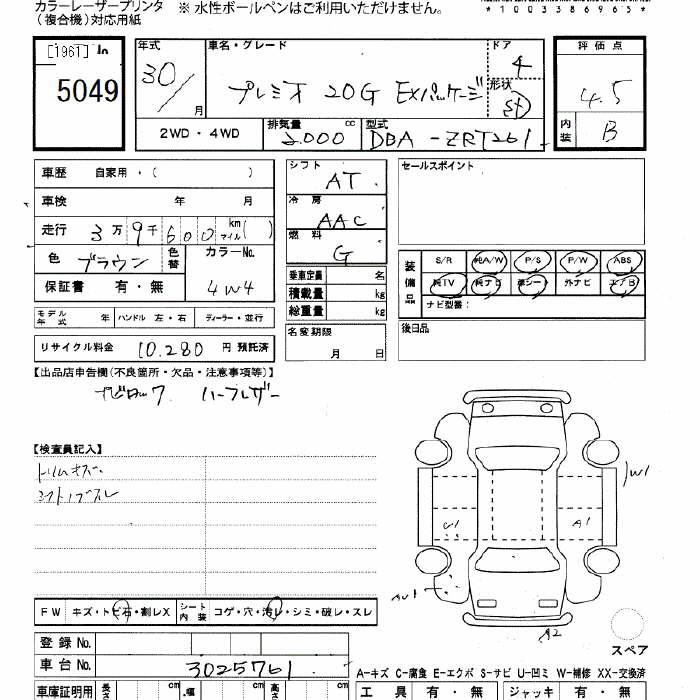 カラーレーザープリンタ ※ 水性ボールペンはご利用いただけません。
(複合機)対応用紙 *1003386965*
[1961]
5049
年式 車名・グレード ドア 評価点
30/ 月 プレミオ 20G EXパッケージ 4 4.5
形状
内装 B
2WD・4WD 排気量 2.000 cc 型式 DBA-ZRT261
車歴 自家用・( )
シフト AT
セールスポイント
車検 年 月
冷房 AAC
走行 3万9千600 km マイル( )
燃料 G
色 ブラウン 色替 カラーNo.
保証書 有・無 4W4
乗車定員 名
積載量 kg
総重量 kg
装備品 S/R 純A/W P/S P/W ABS
純TV 純ナビ 革シート 外ナビ エア/B
ナビ型番:
モデル年式 年 ハンドル 左・右 ディーラー・並行
名変期限
月 日
後日品
リサイクル料金 10.280 円 預託済
【出品店申告欄(不良箇所・欠品・注意事項等)】
ナビロック ハーフレザー
【検査員記入】
W1
A1
A2
FW キズ・トビ石・割レX シート内装 コゲ・穴・汚レ・シミ・破レ・スレ
スペア
登録 No.
車台 No. 3025761
A-キズ C-腐食 E-エクボ S-サビ U-凹ミ W-補修 XX-交換済
車庫証明用 長さ cm 幅 cm 高さ cm
工具 有・無 ジャッキ 有・無